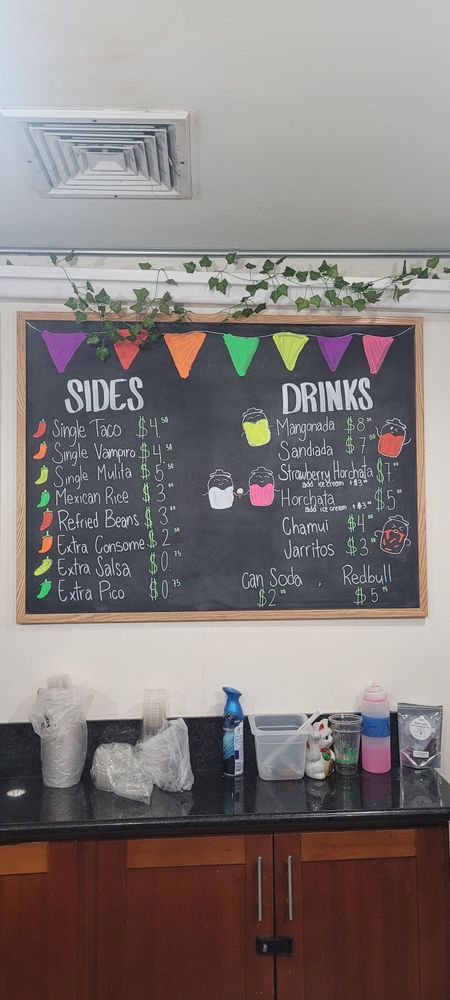 SIDES
Single Taco $4.50
Single Vampiro $4.50
Single Mulita $5.50
Mexican Rice $3.00
Refried Beans $3.00
Extra Consome $2.50
Extra Salsa $0.75
Extra Pico $0.75
DRINKS
Mangonada $8.00
Sandiada $7.00
Strawberry Horchata $7.00
add ice cream +$3.00
Horchata $5.00
add ice cream +$3.00
Chamui $4.00
Jarritos $3.00
Can Soda . Redbull
$2.00 $5.75